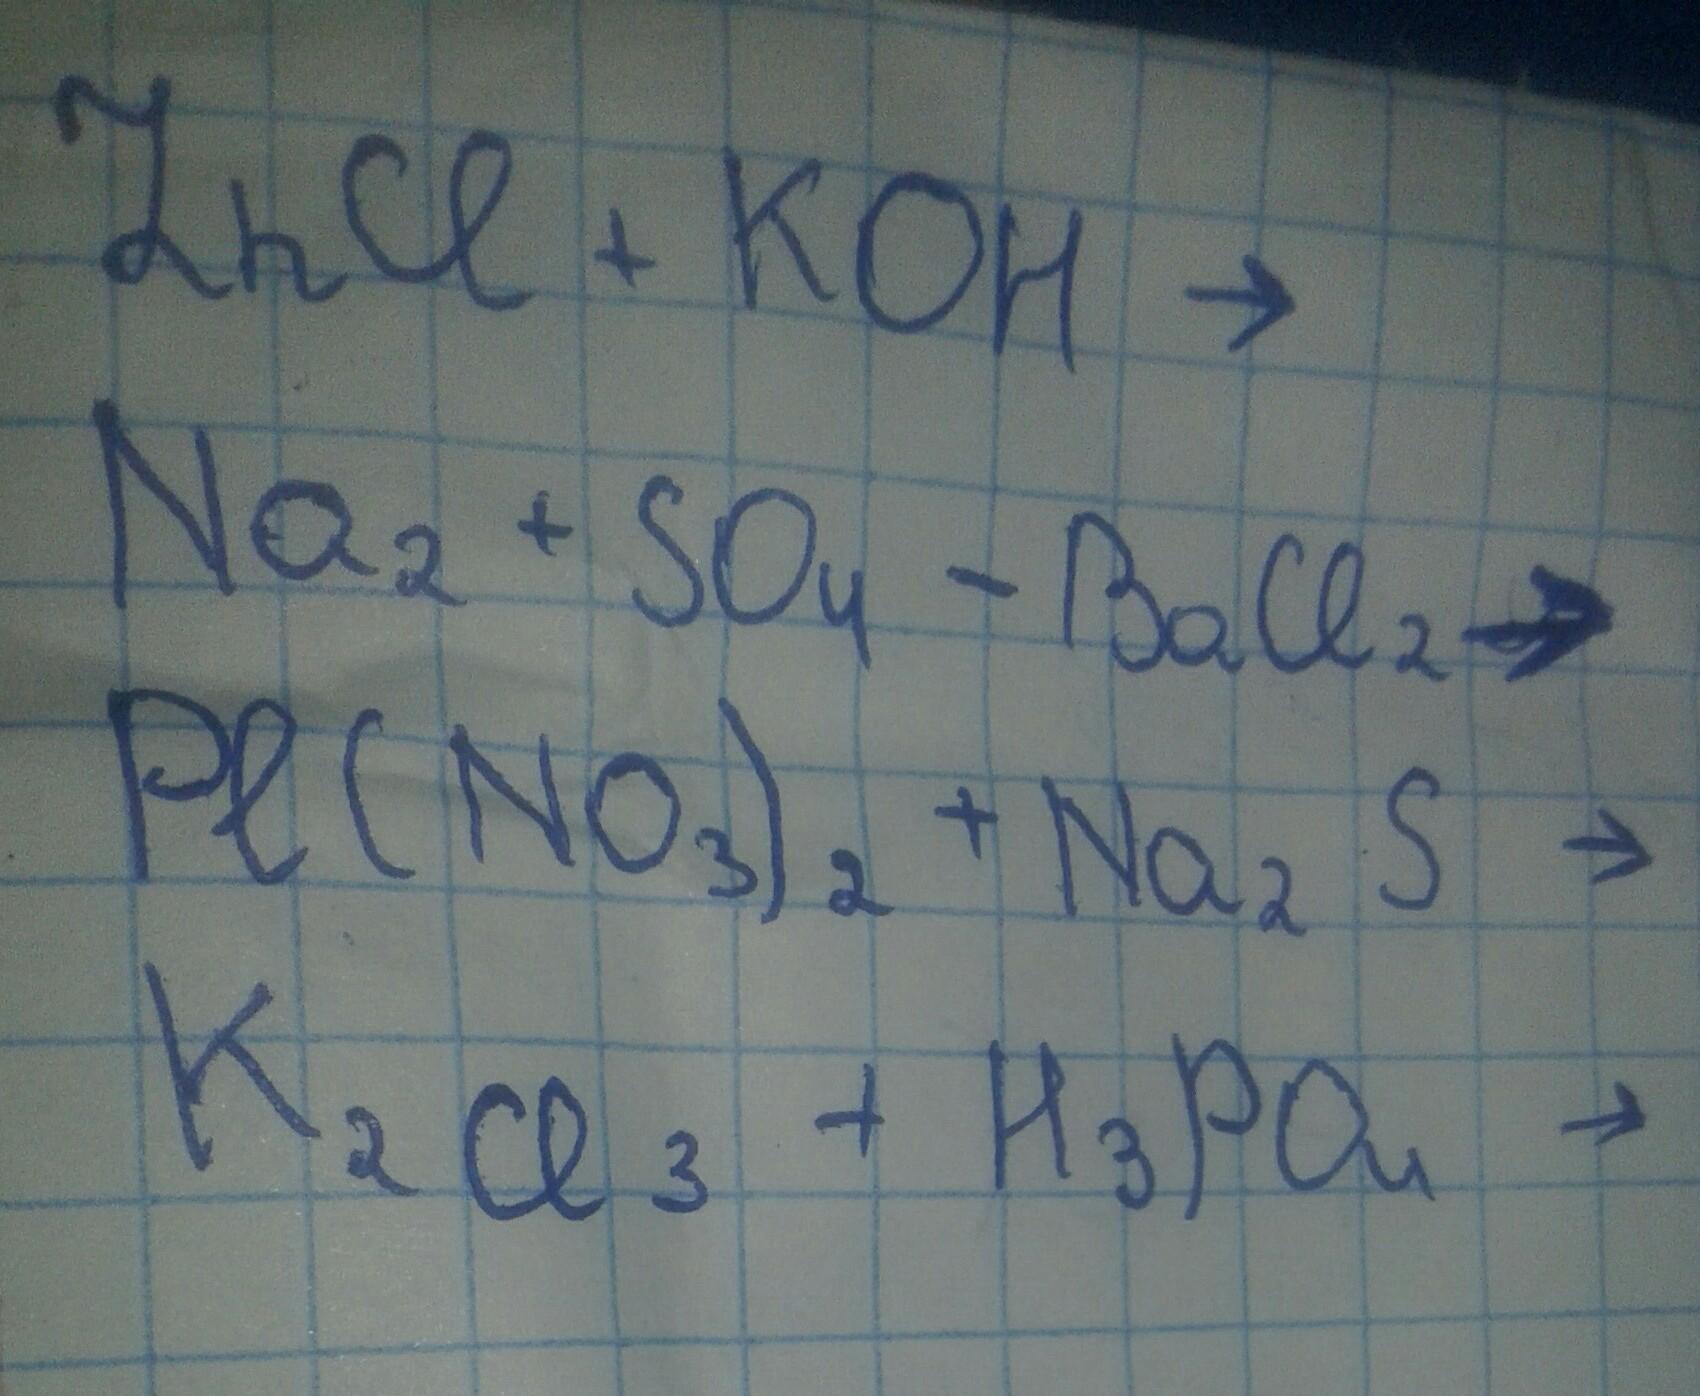 ZnCl + KOH →
Na₂ + SO₄ - BaCl₂ →
Pl(NO₃)₂ + Na₂S →
K₂Cl₃ + H₃PO₄ →